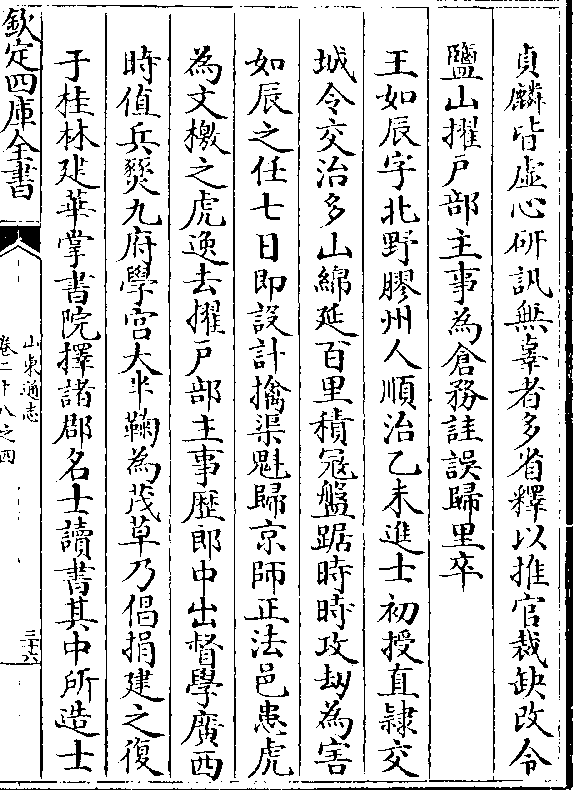 貞麟皆虛心研訊無辜者多省釋以推官裁缺改令
鹽山擢戶部主事為倉務詿誤歸里卒
王如辰字北野膠州人順治乙未進士初授直隸交
城令交治多山綿延百里積冦盤踞時時攻刼為害
如辰之任七日即設計擒渠魁歸京師正法邑患虎
為文檄之虎逸去擢戶部主事歷郎中出督學廣西
時值兵燹九府學宫大半鞠為茂草乃倡捐建之復
于桂林建華掌書院擇諸郡名士讀書其中所造士
欽定四庫全書
山東通志
卷二十八之四
三十六